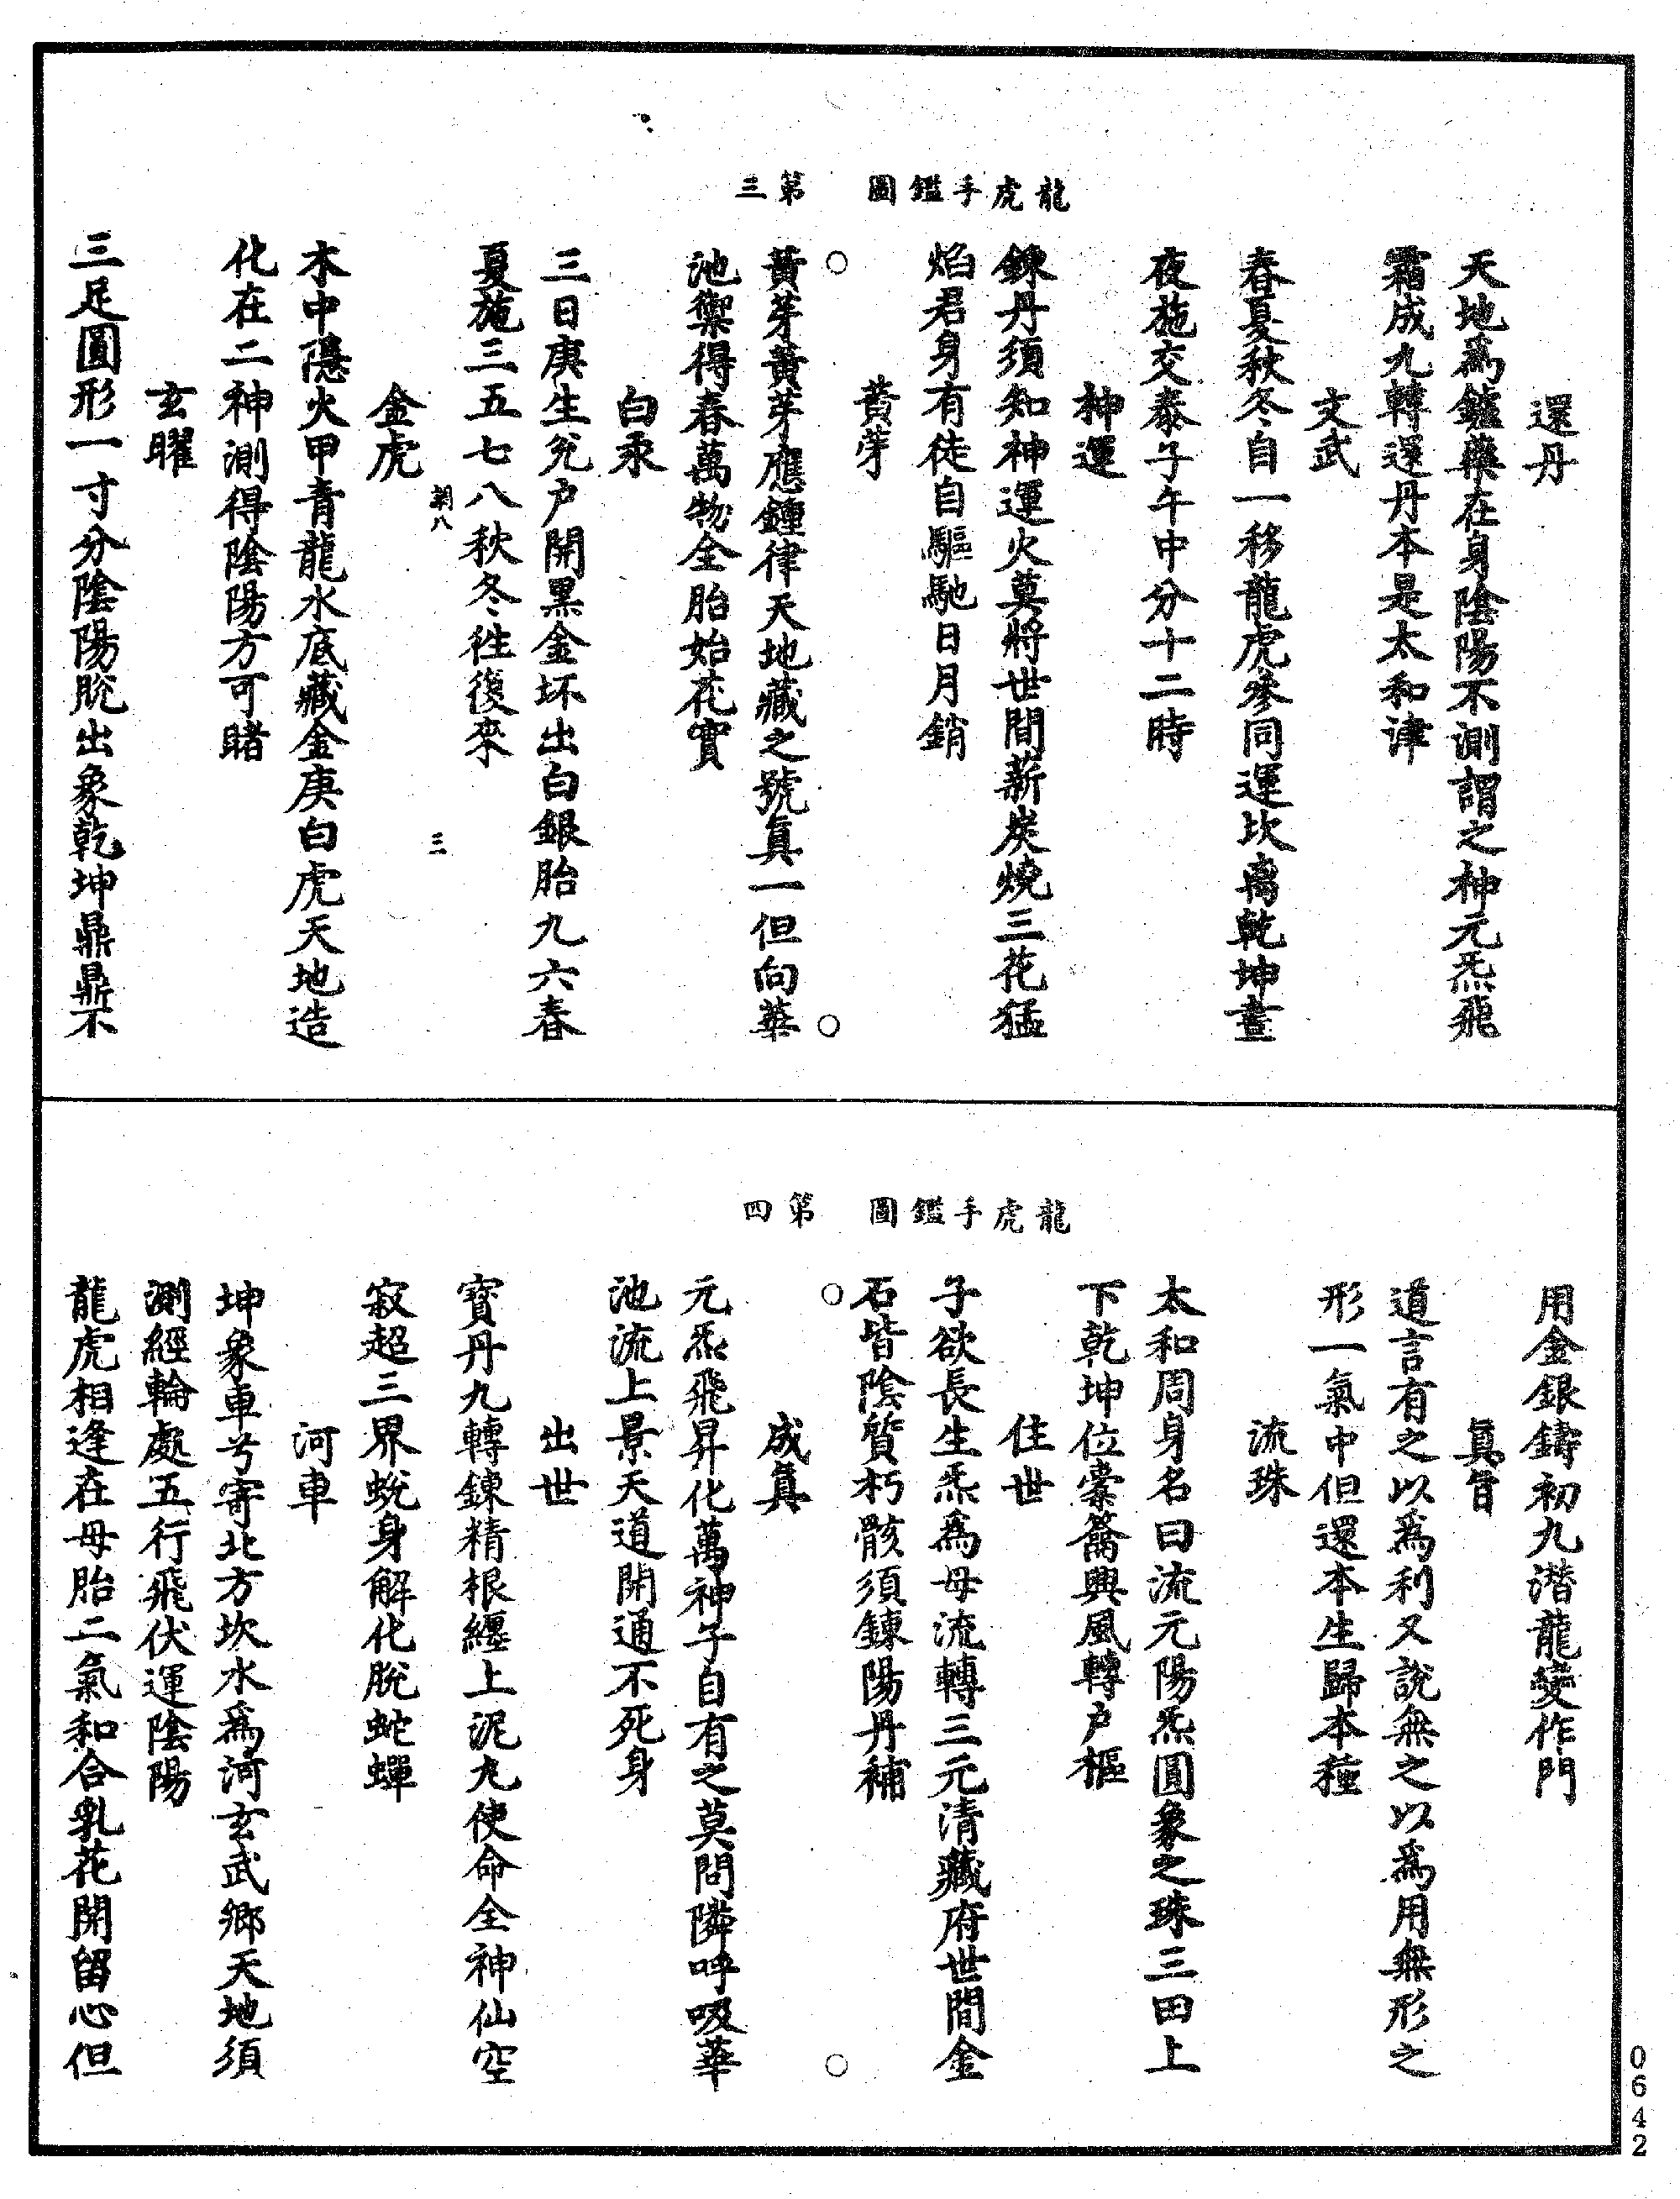 龍虎手鑑圖 第三
還丹
天地爲鑪藥在身陰陽不測謂之神元炁飛
霜成九轉還丹本是太和津
文武
春夏秋冬自一移龍虎參同運坎离乾坤晝
夜施交泰子午中分十二時
神運
鍊丹須知神運火莫將世間薪炭燒三花猛
焰君身有徒自驅馳日月銷
黄芽
黃芽黃芽應鍾律天地藏之號真一但向華
池禦得春萬物全胎始花實
白汞
三日庚生兊户開黑金坏出白銀胎九六春
夏施三五七八秋冬徃復來
三
金虎
木中隱火甲青龍水底藏金庚白虎天地造
化在二神測得陰陽方可睹
玄曜
三足圓形一寸分陰陽脫出象乾坤鼎鼎不
龍虎手鑑圖 第四
用金銀鑄初九潛龍變作門
真旨
道言有之以爲利又說無之以爲用無形之
形一氣中但還本生歸本種
流珠
太和周身名曰流元陽炁圓象之珠三田上
下乾坤位橐籥興風轉户樞
住世
子欲長生炁爲母流轉三元清藏府世間金
石皆陰質朽骸須鍊陽丹補
成真
元炁飛昇化萬神子自有之莫問隣呼吸華
池流上景天道開通不死身
出世
寶丹九轉鍊精根纏上泥丸使命全神仙空
寂超三界蛻身解化脫蛇蟬
河車
坤象車兮寄北方坎水爲河玄武鄉天地須
測經輪處五行飛伏運陰陽
龍虎相逢在母胎二氣和合乳花開留心但
0642